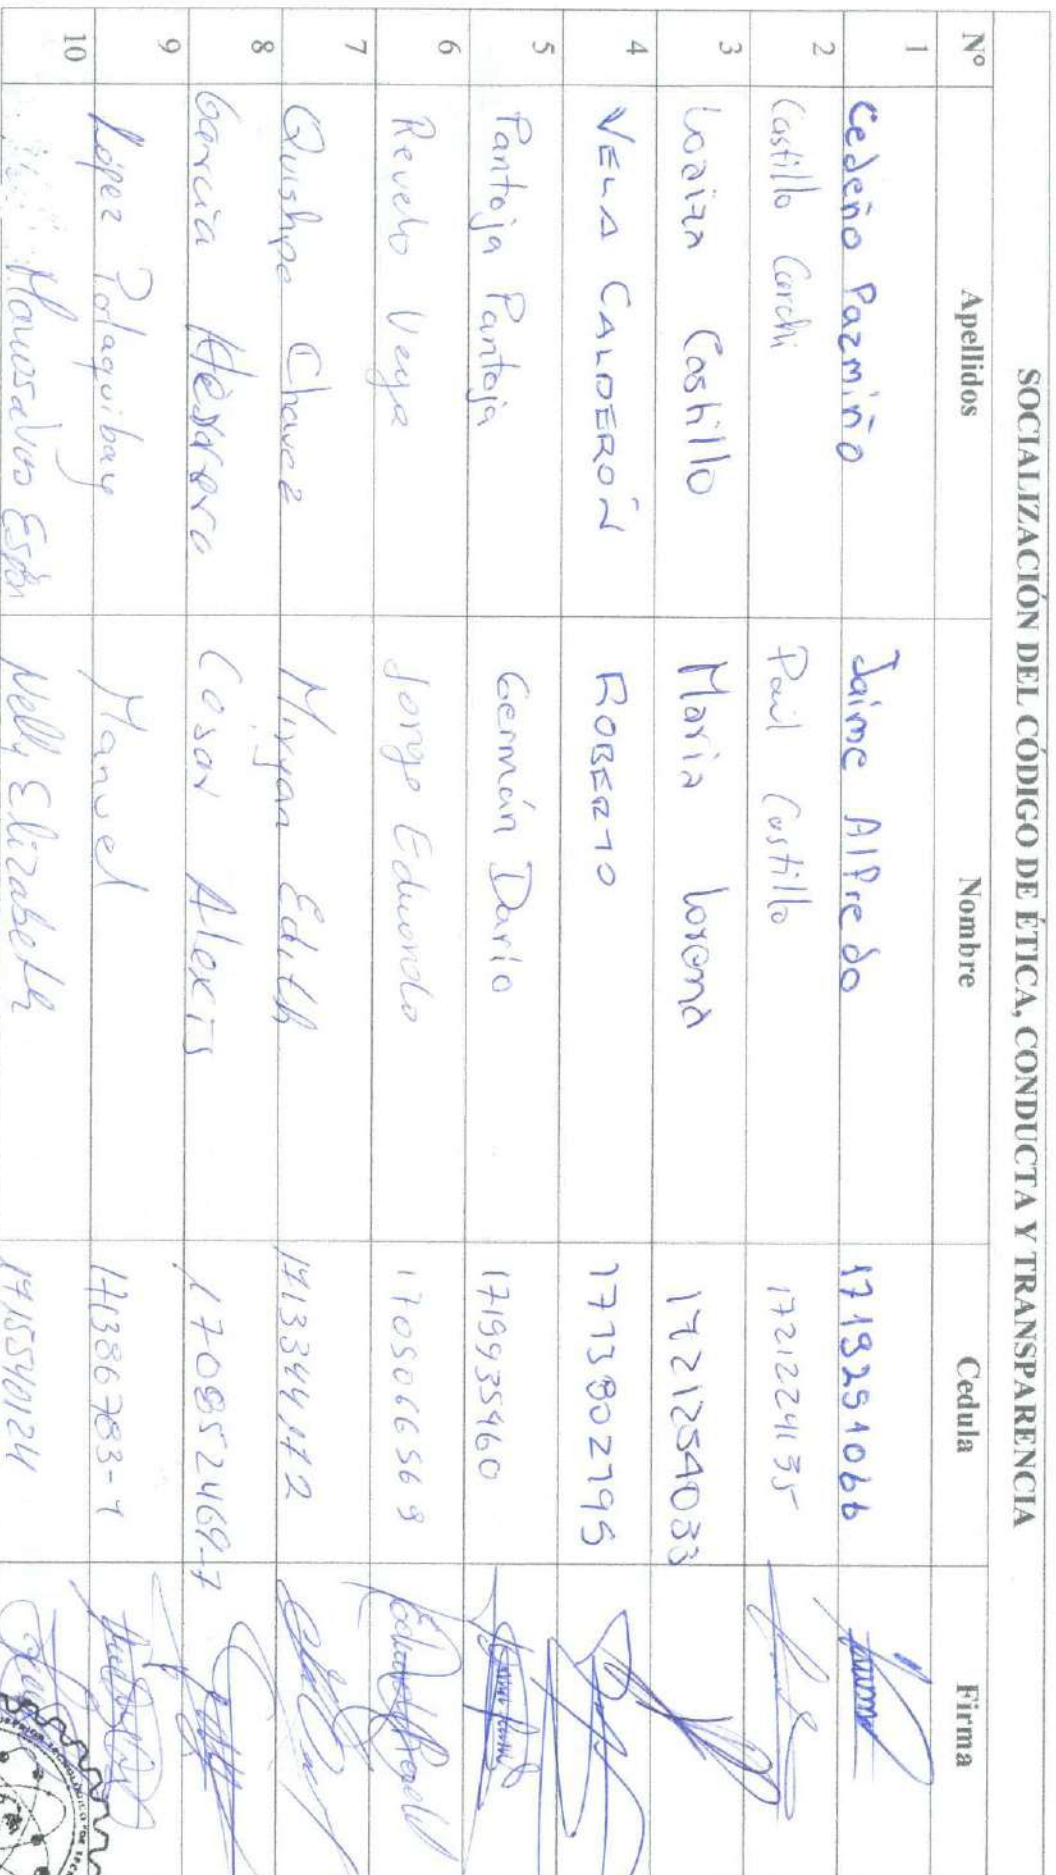 SOCIALIZACIÓN DEL CÓDIGO DE ÉTICA, CONDUCTA Y TRANSPARENCIA
Nº Apellidos Nombre Cedula Firma
1 Cedeño Pazmiño Jaime Alfredo 1719251066
2 Castillo Carchi Paúl Castillo 1721224135
3 Loaiza Castillo Maria Lorena 1721254033
4 VELA CALDERÓN ROBERTO 1713802795
5 Pantoja Pantoja Germán Darío 1719935460
6 Revelo Vega Jorge Eduardo 1705066569
7 Quishpe Chavez Miryan Edith
8 Garcia Cesar Alexis 170852469-7
9 López Manuel 171386783-1
10 Nelly Elizabeth 1715540124